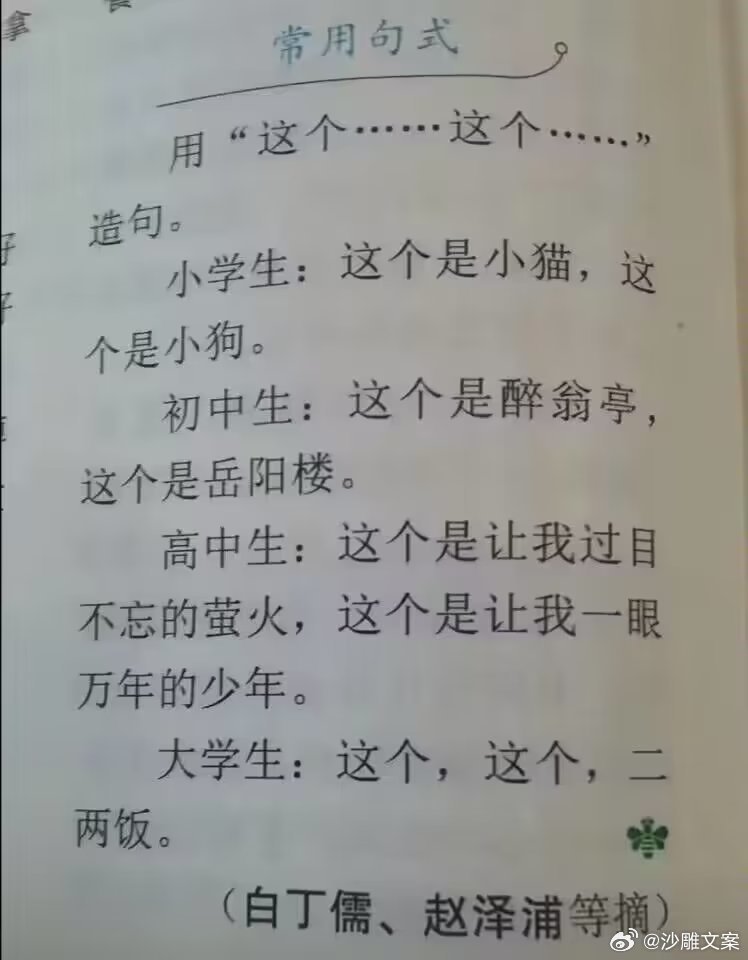 拿
常用句式
用“这个……这个……”
造句。
小学生：这个是小猫，这
个是小狗。
初中生：这个是醉翁亭，
这个是岳阳楼。
高中生：这个是让我过目
不忘的萤火，这个是让我一眼
万年的少年。
大学生：这个，这个，二
两饭。
（白丁儒、赵泽浦等摘）
好
好
@沙雕文案